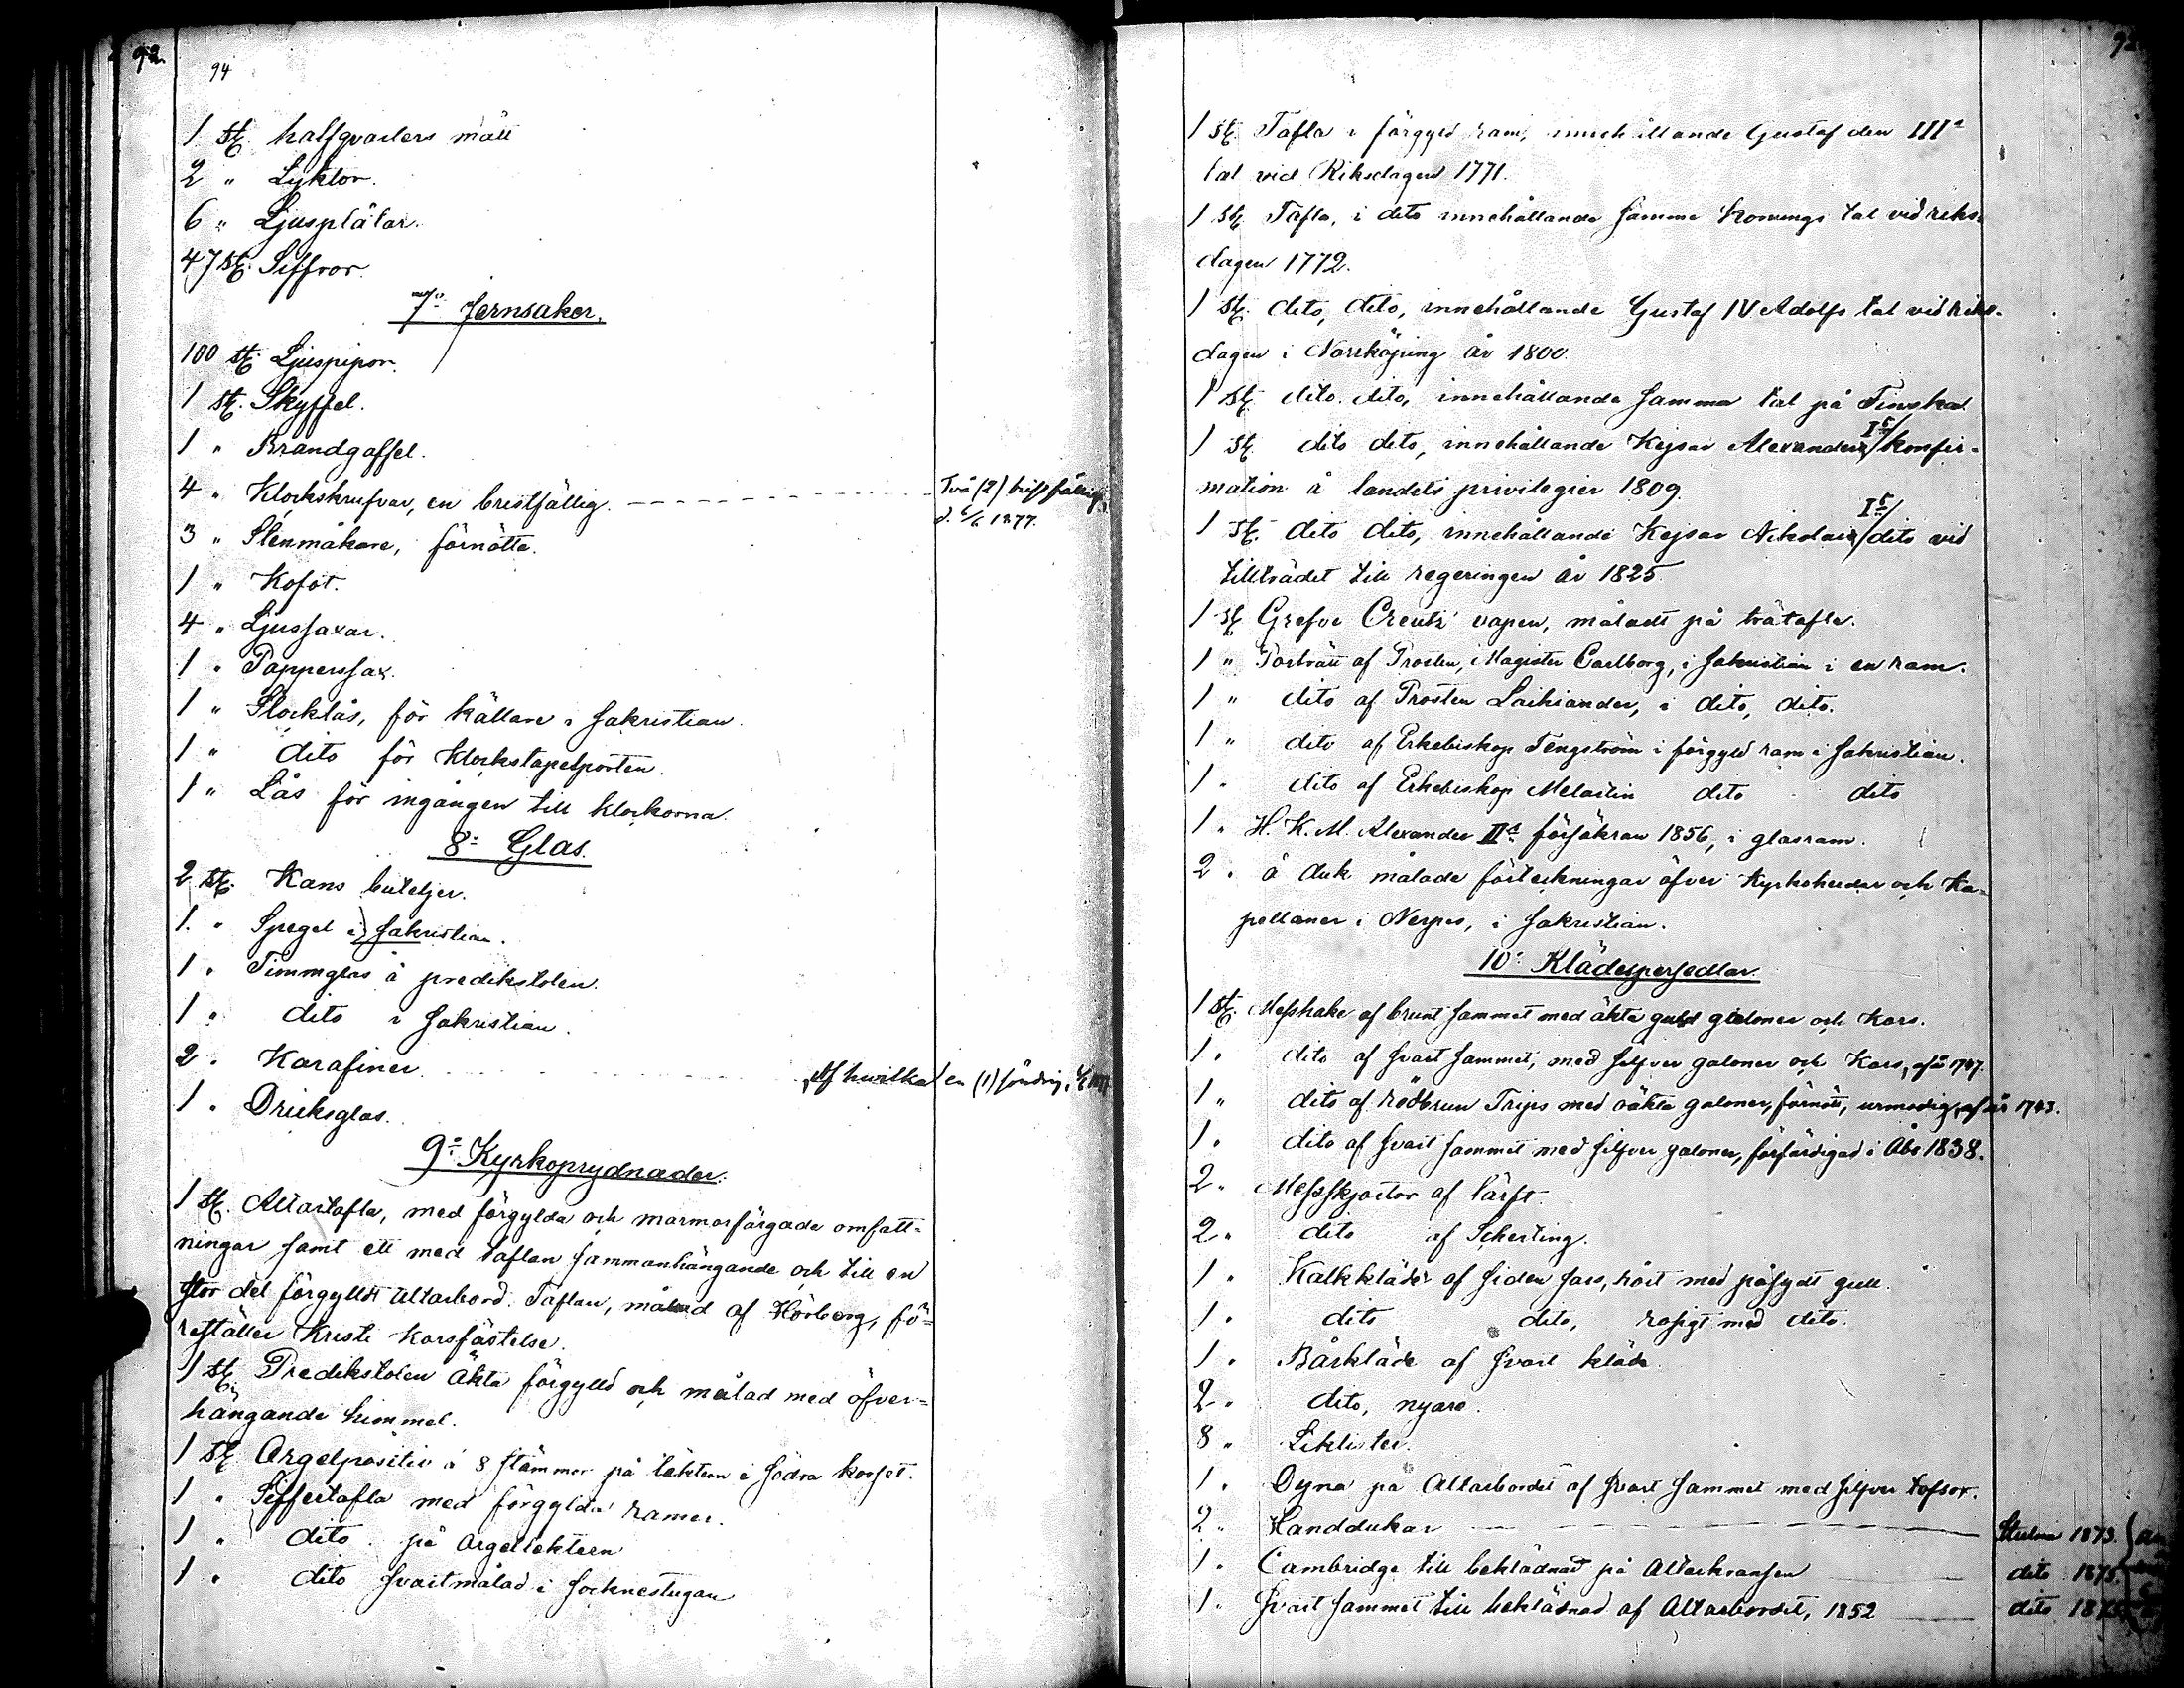 92.
94
1 st. halfqvarters mått
2 " Lyktor.
6 " Ljusplåtar.
47 st. Siffror.
7:o Jernsaker.
100 st. Ljuspipor.
1 st. Skyffel.
1 " Brandgaffel.
4 " Klockskrufvar, en bristfällig. Två (2) bristfälliga
d. 6/6 1877.
3 " Stenmåkare, förnötta.
1 " Kofot.
4 " Ljussaxar.
1 " Papperssax.
1 " Stocklås, för källare i sakristian.
1 " dito för klockstapelporten.
1 " Lås för ingången till klockorna.
8:o Glas.
2 st. Kans buteljer.
1. " Spegel i sakristian.
1 " Timmglas å predikstolen.
1 " dito i sakristian.
2 " Karafiner. Af hwilka en (1) söndrig,
1 " Dricksglas.
9:o Kyrkoprydnader.
1 st. Altartafla, med förgylda och marmorfärgade omfatt-
ningar samt ett med taflan sammanhängande och till en
stor del förgylldt altarbord. Taflan, målad af Hörberg, fö-
reställer Kristi korsfästelse.
1 st. Predikstolen äkta förgylld och målad med öfver-
hängande himmel.
1 st. Orgelpositiv á 8 stämmor på läktern i södra korset.
1 " Siffertafla med förgylda ramer.
1 " dito på orgelläktern
1 " dito svartmålad i socknestugan
1 st. Tafla i förgyld ram, innehållande Gustaf den III:s
tal vid Riksdagen 1771.
1 st. Tafla, i dito innehållande samme Konungs tal vid riks-
dagen 1772.
1 st. dito, dito, innehållande Gustaf IV Adolfs tal vid riks-
dagen i Norrköping år 1800.
1 st. dito. dito, innehållande samma tal på Finska
1 st. dito dito, innehållande Kejsar Alexander I:s konfir-
mation å landets privilegier 1809.
1 st. dito dito, innehållande Kejsar Nikolai I:s dito vid
tillträdet till regeringen år 1825.
1 st Grefve Creutz' vapen, måladt på trätafla.
1 " Porträtt af Prosten, Magister Carlborg, i sakristian i en ram.
1 " dito af Prosten Laihiander, i dito, dito.
1 " dito af Erkebiskop Tengström i förgyld ram i sakristian.
1 " dito af Erkebiskop Melartin dito dito
1 " H. K. M. Alexander II:s försäkran 1856, i glasram.
2 " å duk målade förteckningar öfver kyrkoherdar och ka-
pellaner i Nerpes, i sakristian.
10:o Klädespersedlar.
1 st. Messhake af brunt sammet med äkta guld galoner och Kors.
1 " dito af svart sammet, med silfver galoner och Kors, af år 1747.
1 " dito af rödbrun Trips med oäkta galoner, förnött, urmodig, af år 1743.
1 " dito af svart sammet med silfver galoner, förfärdigad i Åbo 1838.
2 " Messskjortor af lärft.
2 " dito af Scherting.
1 " Kalkkläde af siden sars, hvit med påsydt gull.
1 " dito dito, rosigt med dito.
1 " Bårkläde af svart kläde.
2 " dito, nyare.
8 " Liklister.
1 " Dyna på Altarbordet af svart sammet med silfver tofsor.
2 " Handdukar Stulna 1873.
1 " Cambridge till beklädnad på Altarkransen dito 1875.
1 " Svart sammet till beklädnad af Altarbordet, 1852 dito